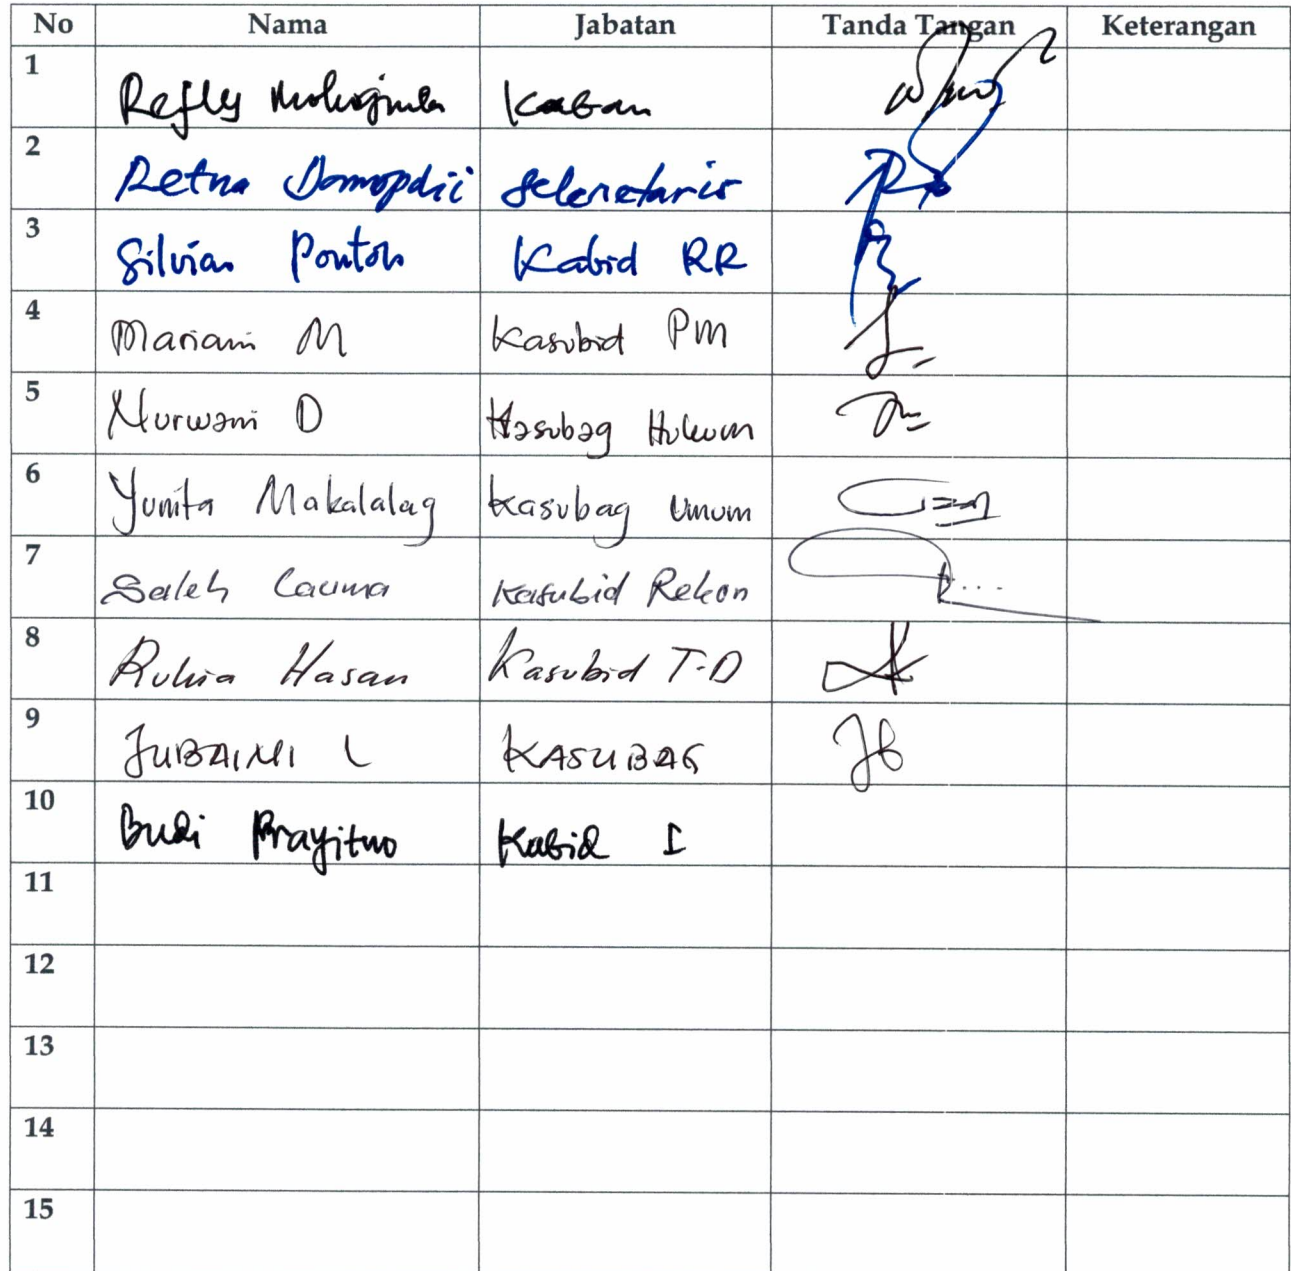 No Nama Jabatan Tanda Tangan Keterangan
1 Refly Kaban
2 Retna Sekretaris
3 Silvian Pontoh Kabid RR
4 Mariani M Kasubid PM
5 Nurwani D Kasubag Hukum
6 Yunita Makalalag Kasubag Umum
7 Saleh Lauma Kasubid Rekon
8 Rukia Hasan Kasubid T-D
9 JUBAINI L KASUBAG
10 Budi Prayitno Kabid I
11
12
13
14
15